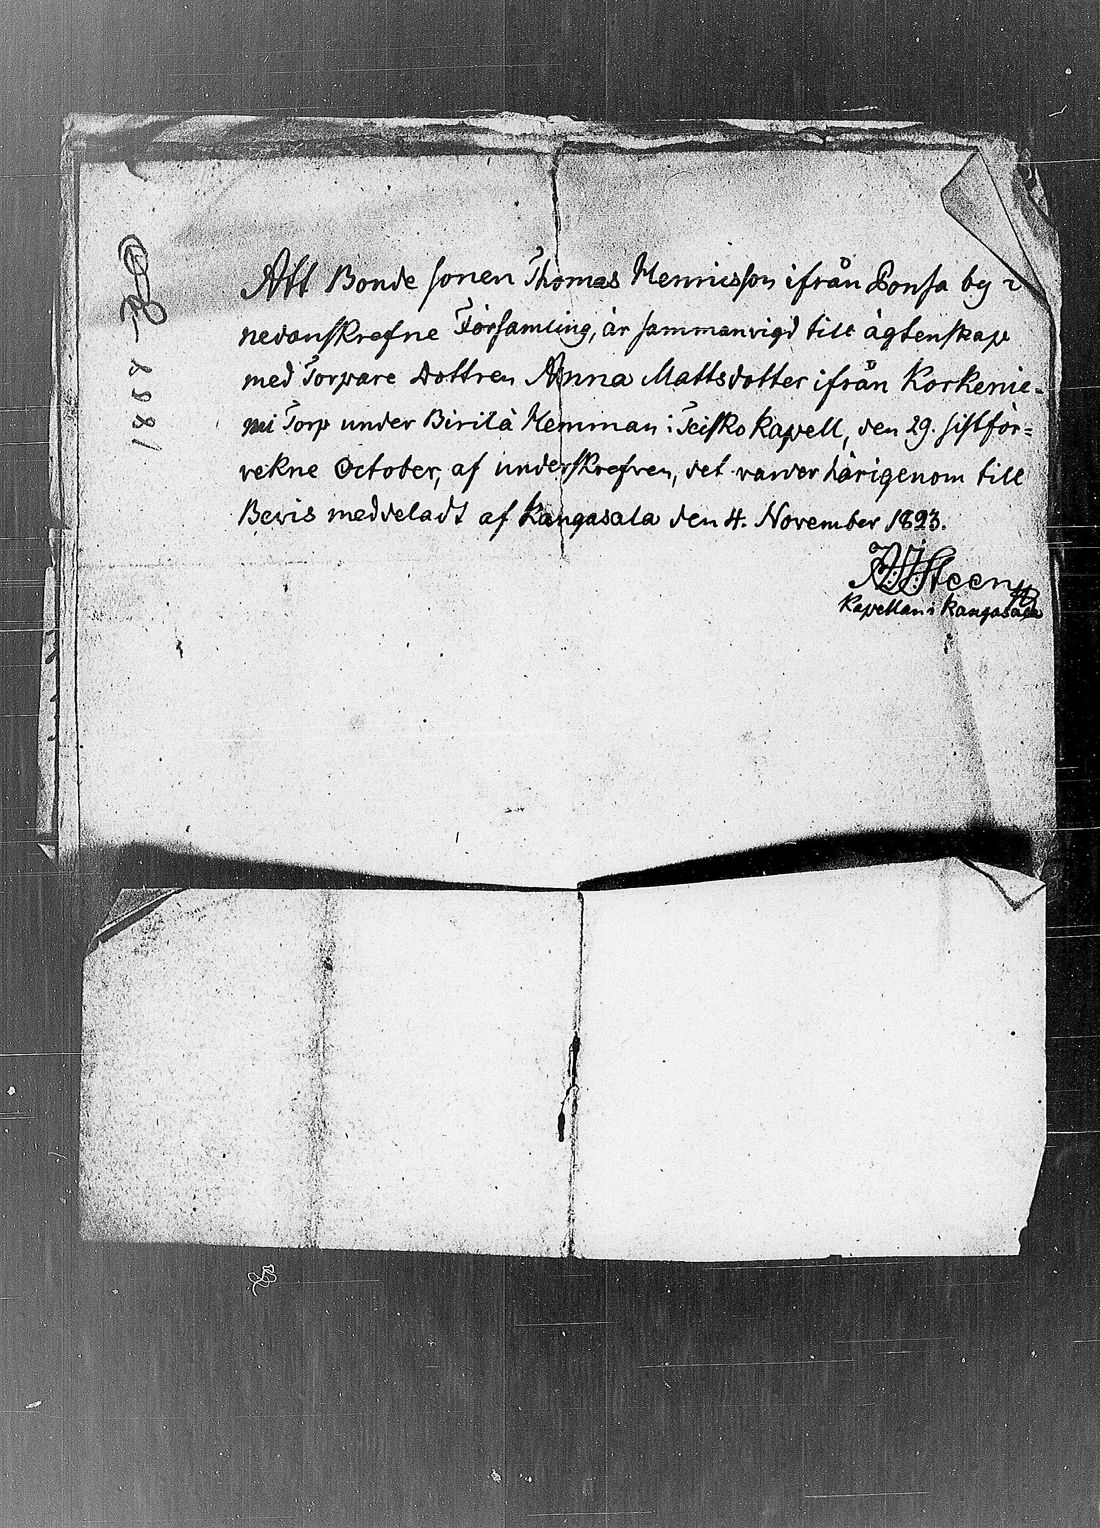 Att Bonde sonen Thomas Hennicsson ifrån Ponsa by i
nedanskrefne Församling, är sammanvigd till ägtenskap
med Torpare Dottren Anna Mattsdotter ifrån Korkenie-
mi Torp under Birilä Hemman i Teisko kapell, den 29. sistför=
vekne October, af underskrefven, det varder härigenom till
Bevis meddeladt af Kangasala den 4. November 1823.
Steen
Kapellan i Kangasala